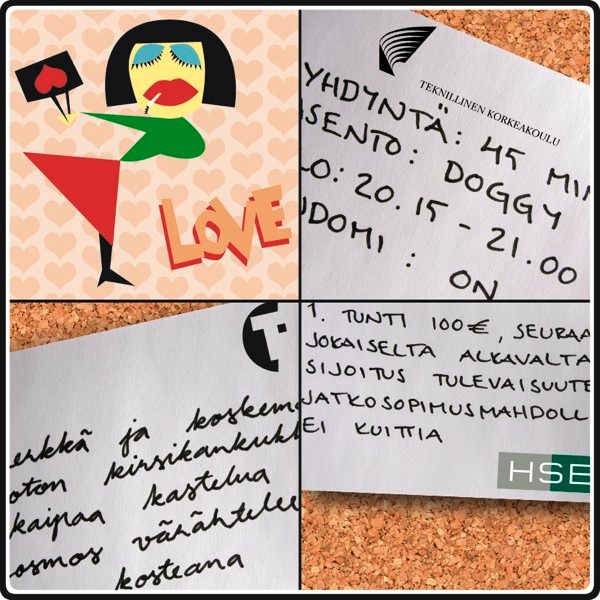 LOVE
TEKNILLINEN KORKEAKOULU
YHDYNTÄ: 45 MIN
SENTO: DOGGY
LO: 20.15 - 21.00
DOMI : ON
T·
erkkä ja koskema
oton kirsikankukk
kaipaa kastelua
osmos värähtelee
kosteana
1. TUNTI 100€, SEURAA
JOKAISELTA ALKAVALTA
SIJOITUS TULEVAISUUTE
JATKOSOPIMUSMAHDOLL
EI KUITTIA
HSE